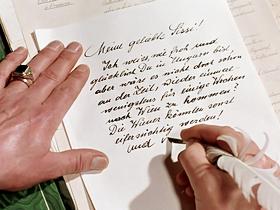 Meine geliebte Sissi!
Ich weiss, wie froh und
glücklich Du in Ungarn bist,
aber wäre es nicht doch schon
an der Zeit, wieder einmal
wenigstens für einige Wochen
nach Wien zu kommen?
Die Wiener könnten sonst
eifersüchtig werden!
Und